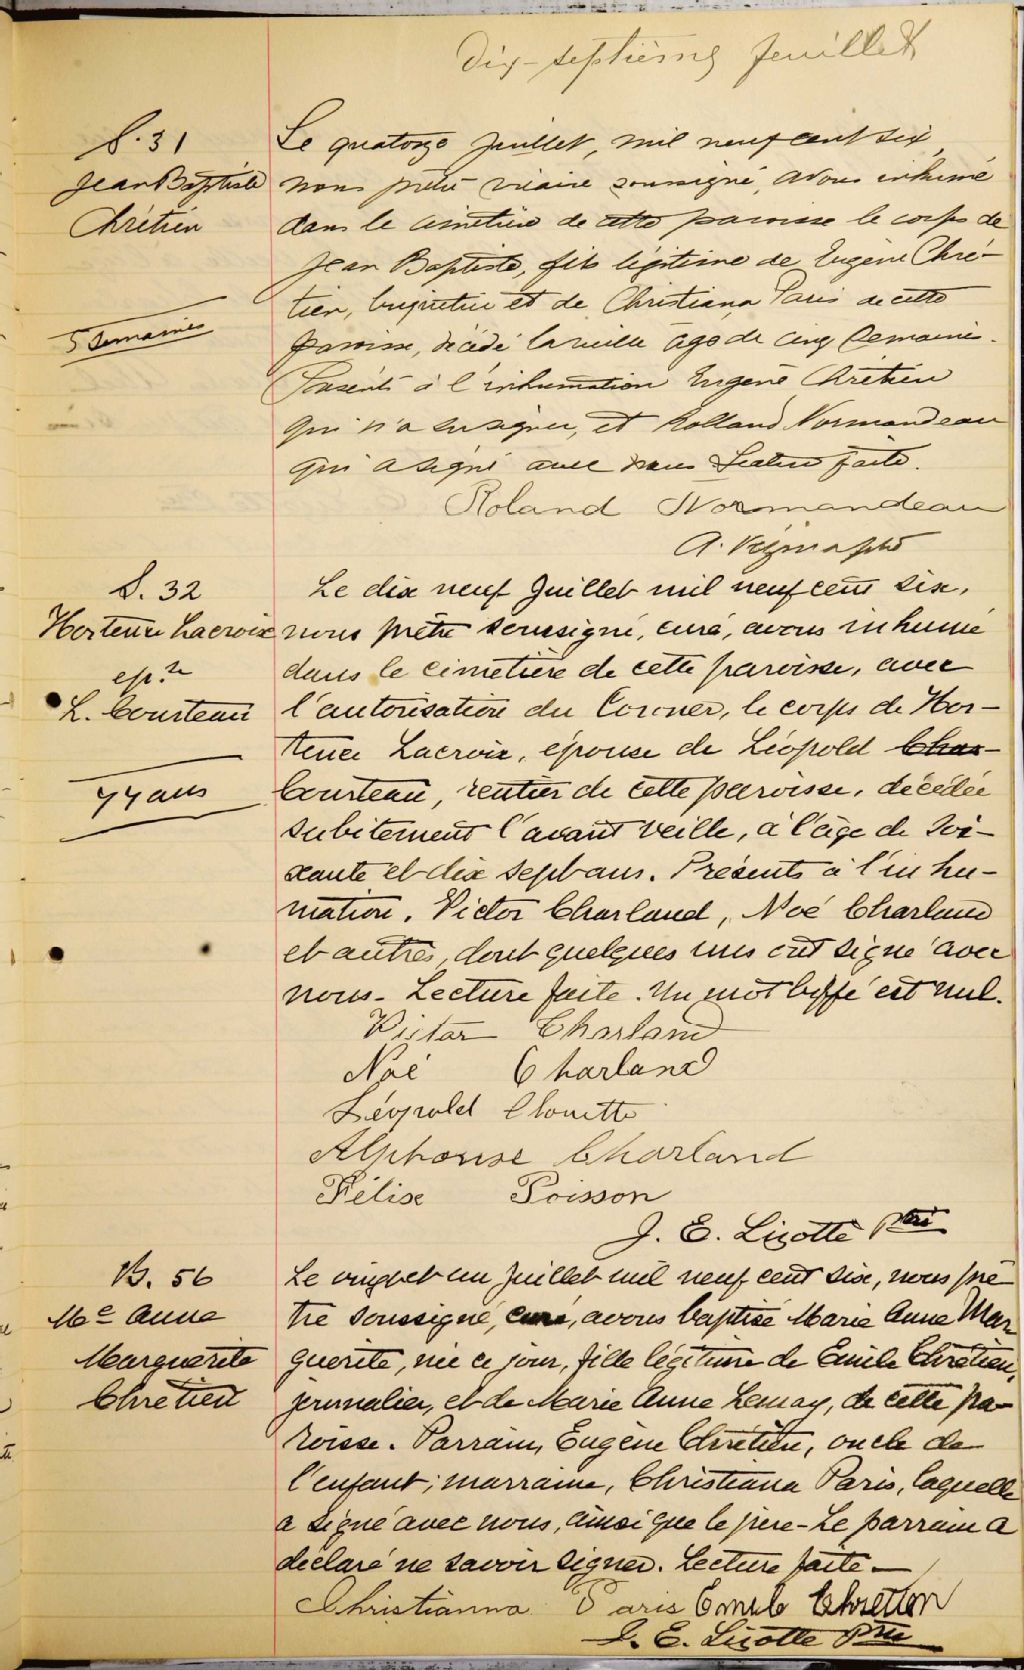 Dix-septième feuillet
S. 31
Jean Baptiste
Chrétien
5 semaines
Le quatorze juillet, mil neuf cent six,
nous prêtre vicaire soussigné, avons inhumé
dans le cimetière de cette paroisse le corps de
Jean Baptiste, fils légitime de Eugène Chré-
tien, briquetier et de Christiana Paris de cette
paroisse, décédé la veille âgé de cinq semaines.
Présents à l'inhumation Eugène Chrétien
qui n'a su signer, et Rolland Normandeau
qui a signé avec nous Lecture faite.
Roland Normandeau
A. ptre
S. 32
Hortense Lacroix
ep.se
L. Courteau
77 ans
Le dix neuf Juillet mil neuf cent six,
nous prêtre soussigné, curé, avons inhumé
dans le cimetière de cette paroisse, avec
l'autorisation du Coroner, le corps de Hor-
tence Lacroix, épouse de Léopold Char-
Courteau, rentier de cette paroisse, décédée
subitement l'avant veille, à l'âge de soi-
xante et dix sept ans. Présents à l'inhu-
mation, Victor Charland, Noé Charland
et autres, dont quelques uns ont signé avec
nous - Lecture faite. Un mot biffé est nul.
Victor Charland
Noé Charland
Léopold Clouette
Alphonse Charland
Félix Poisson
J. E. Lizotte Ptre
B. 56
Me Anne
Marguerite
Chretien
Le vingt et un Juillet mil neuf cent six, nous prê-
tre soussigné, curé, avons baptisé Marie Anne Mar-
guerite, née ce jour, fille légitime de Emile Chrétien,
journalier, et de Marie Anne Lemay, de cette pa-
roisse. Parrain, Eugène Chrétien, oncle de
l'enfant; marraine, Christiana Paris, laquelle
a signé avec nous, ainsi que le père - Le parrain a
déclaré ne savoir signer. Lecture faite -
Christianna Paris Emile Chretien
J. E. Lizotte Ptre